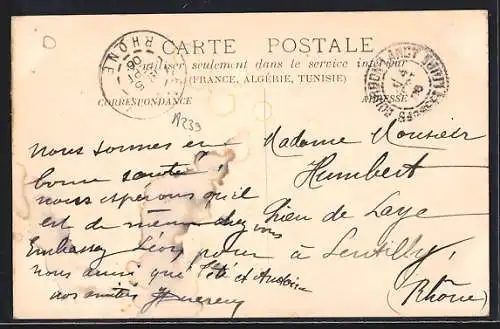 RHONE
CARTE POSTALE
à utiliser seulement dans le service intérieur
(FRANCE, ALGÉRIE, TUNISIE)
CORRESPONDANCE
ADRESSE
Nous sommes en
bonne santé,
nous espérons qu'il
est de même chez vous
Embassez Léon pour
nous ainsi que
nos amitiés
Madame Monsieur
Humbert
de Laye
à Lentilly,
(Rhône)